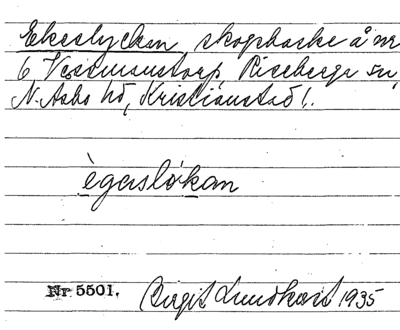 Ekeslyckan, skogsbacke å nr
6 Vessmanstorp, Riseberga sn,
N. Åsbo hd, Kristianstad l.
ègaslókan
Nr 5501. Birgit Lundkvist 1935